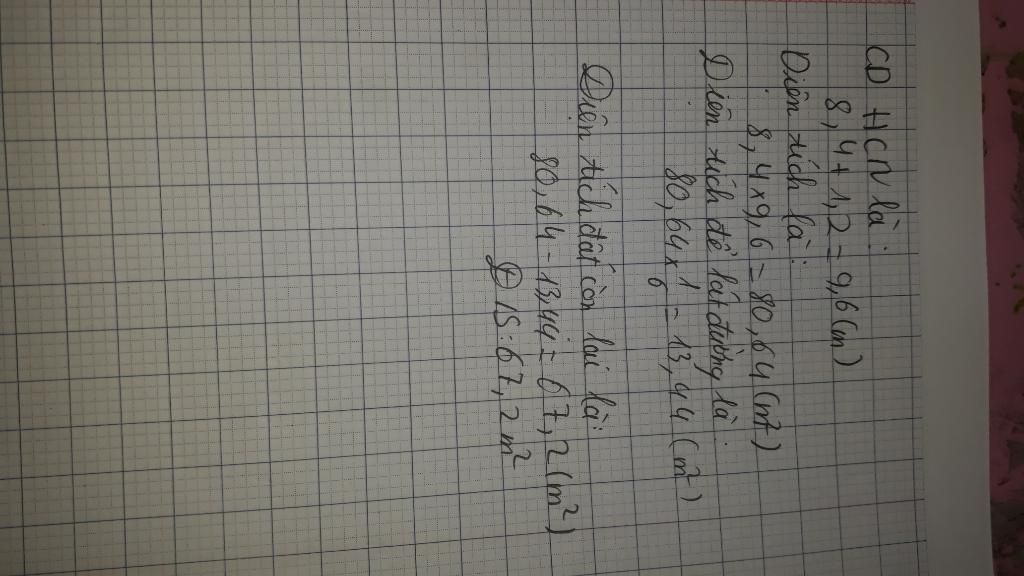 CD HCN là:
8,4 + 1,2 = 9,6 (m)
Diện tích là:
8,4 x 9,6 = 80,64 (m²)
Diện tích để lát đường là:
80,64 x 1/6 = 13,44 (m²)
Diện tích đất còn lại là:
80,64 - 13,44 = 67,2 (m²)
Đ/S: 67,2 m²